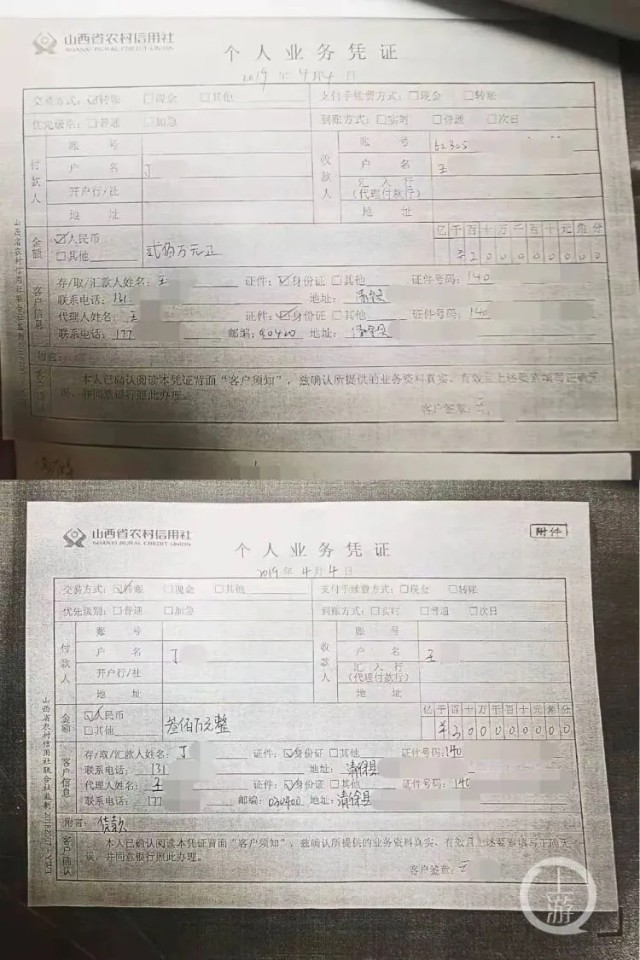 山西省农村信用社
SHANXI RURAL CREDIT UNION
个人业务凭证
2019年4月4日
交易方式：☑转账 □现金 □其他 支付手续费方式：□现金 □转账
优先级别：□普通 □加急 到账方式：□实时 □普通 □次日
付款人 账号 收款人 账号 62305
户名 丁 户名 王
开户行/社 汇入行（代理付款行）
地址 地址
金额 ☑人民币 □其他 贰佰万元正 亿千百十万千百十元角分
¥200000000
客户信息
存/取/汇款人姓名：王 证件：☑身份证 □其他 证件号码：140
联系电话：131 地址：清徐县
代理人姓名：王 证件：☑身份证 □其他 证件号码：140
联系电话：177 邮编： 地址：清徐县
附言：
本人已确认阅读本凭证背面“客户须知”，兹确认所提供的业务资料真实、有效且上述要素填写正确无
误，并同意银行照此办理。
客户签章：王
山西省农村信用社
SHANXI RURAL CREDIT UNION
附件
个人业务凭证
2019年4月4日
交易方式：☑转账 □现金 □其他 支付手续费方式：□现金 □转账
优先级别：□普通 □加急 到账方式：□实时 □普通 □次日
付款人 账号 收款人 账号
户名 丁 户名 王
开户行/社 汇入行（代理付款行）
地址 地址
金额 ☑人民币 □其他 叁佰万元整 亿千百十万千百十元角分
¥300000000
客户信息
存/取/汇款人姓名：丁 证件：☑身份证 □其他 证件号码：140
联系电话：131 地址：清徐县
代理人姓名：王 证件：☑身份证 □其他 证件号码：140
联系电话：177 邮编：030400 地址：清徐县
附言：货款
客户确认
本人已确认阅读本凭证背面“客户须知”，兹确认所提供的业务资料真实、有效且上述要素填写正确无
误，并同意银行照此办理。
客户签章：王
上游